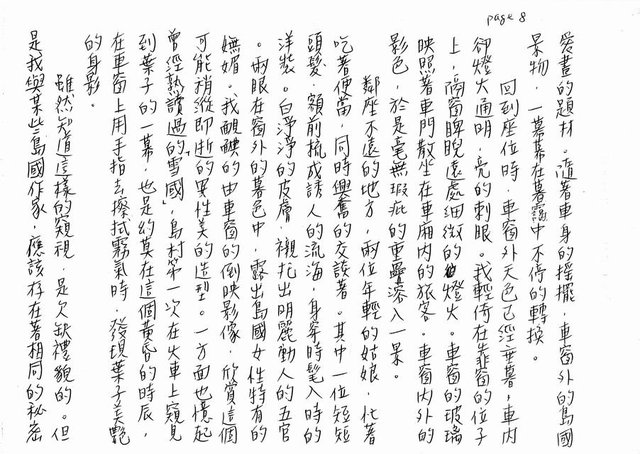 page 8
愛畫的題材。隨著車身的搖擺，車窗外的島國
景物，一幕幕在暮靄中不停的轉換。
回到座位時，車窗外天色已經垂暮，車內
卻燈火通明，亮的刺眼。我輕倚在靠窗的位子
上，隔窗睥睨遠處細微的燈火。車窗的玻璃
映照著車門散坐在車廂內的旅客，車窗內外的
影色，於是毫無瑕疵的重疊深入一景。
鄰座不遠的地方，兩位年輕的姑娘，忙著
吃著便當，同時興奮的交談著。其中一位短短
頭髮，額前梳成誘人的流海，身穿時髦入時的
洋裝。白淨淨的皮膚，襯托出明麗動人的五官
。兩眼在窗外的暮色中，露出島國女性特有的
嫵媚。我靦腆的由車窗的倒映影像，欣賞這個
可能稍縱即逝的異性美的造型。一方面也憶起
曾經熟讀過的「雪國」，島村第一次在火車上窺見
到葉子的一幕，也是約莫在這個黃昏的時辰，
在車窗上用手指去擦拭霧氣時，發現葉子美艷
的身影。
雖然知道這樣的窺視，是欠缺禮貌的。但
是我與某些島國作家，應該存在著相同的秘密